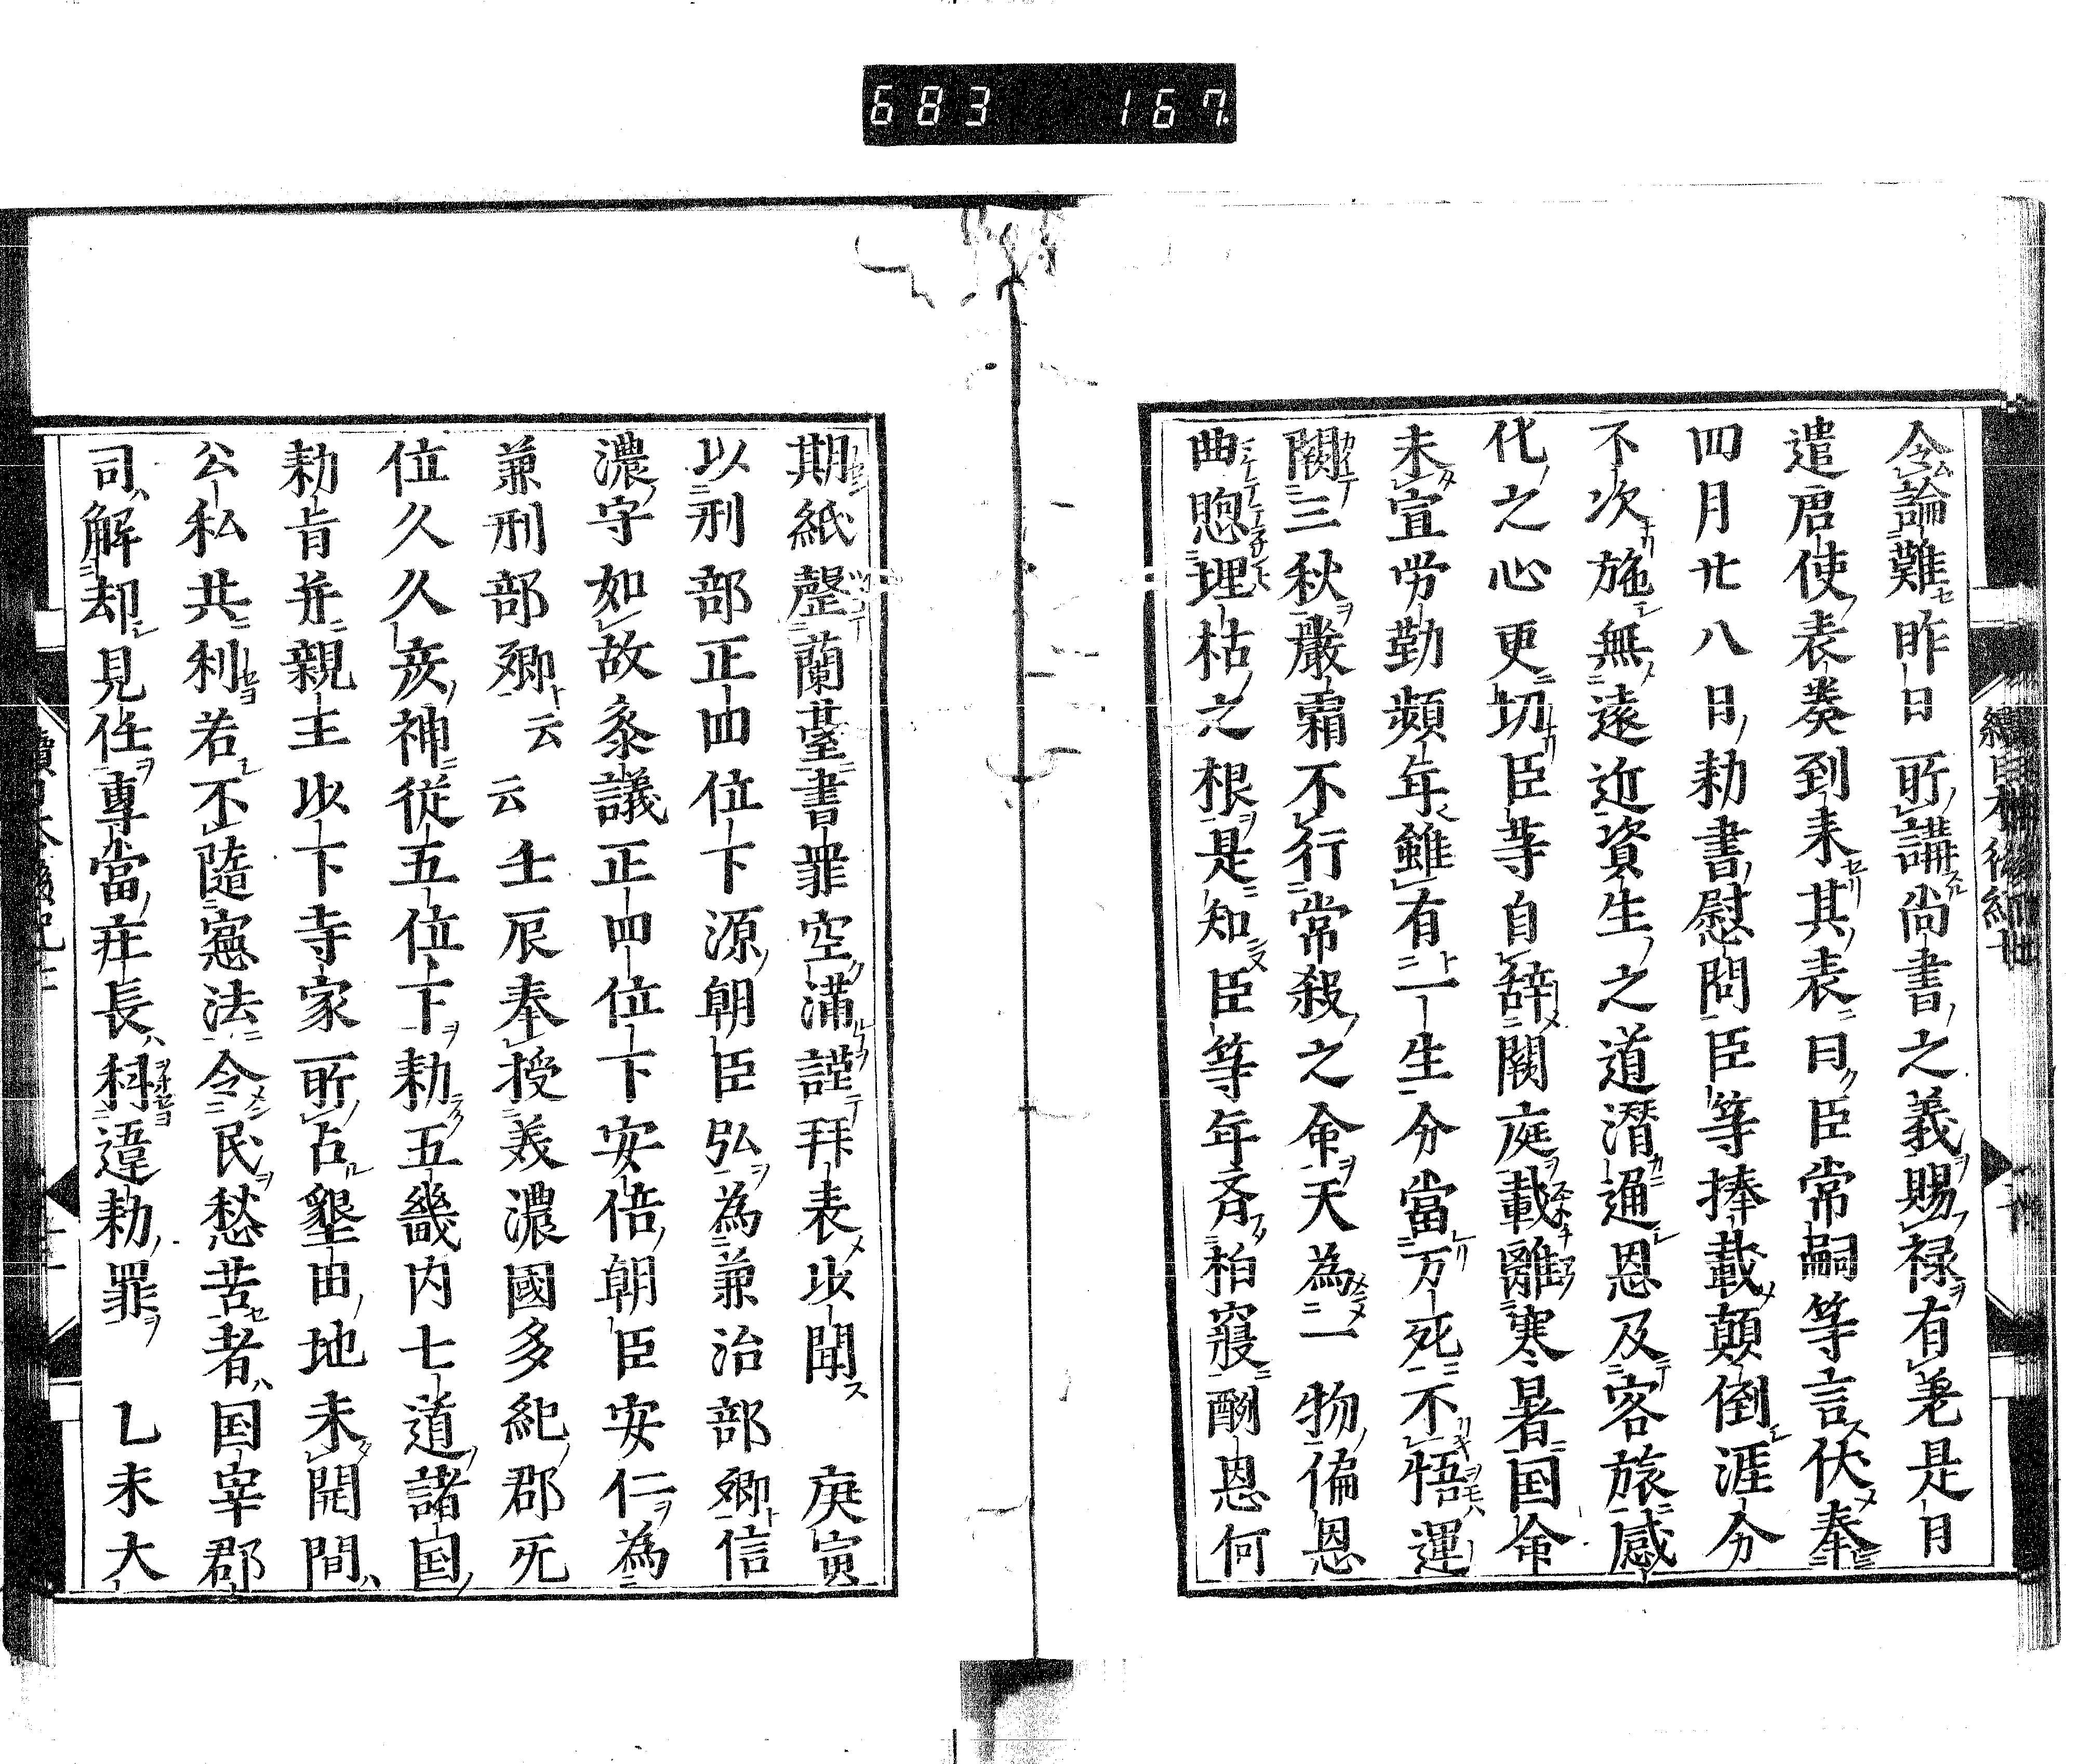 683 167
令論難昨日所講尚書之義賜禄有差是日
遣唐使表奏到来其表曰臣常嗣等言伏奉
四月廿八日勅書慰問臣等捧載顛倒涯分
不次施無遠近資生之道潜通恩及客旅感
化之心更切臣等自辞闕庭載離寒暑国命
未宣労勤頻年雖有二生分當万死不悟運
闕三秋嚴霜不行常殺之命天為一物偏恩
曲煦埋枯之根是知臣等年斉柏寝酬恩何
期紙罄蘭臺書罪空満謹拜表以聞 庚寅
以刑部正四位下源朝臣弘為兼治部卿信
濃守如故参議正四位下安倍朝臣安仁為
兼刑部卿云云壬辰奉授美濃國多紀郡无
位久久疾神從五位下勅五畿内七道諸国
勅旨并親王以下寺家所占墾田地未開間
公私共利若不隨憲法令民愁苦者国宰郡
司解却見任專當庄長科違勅罪 乙未大